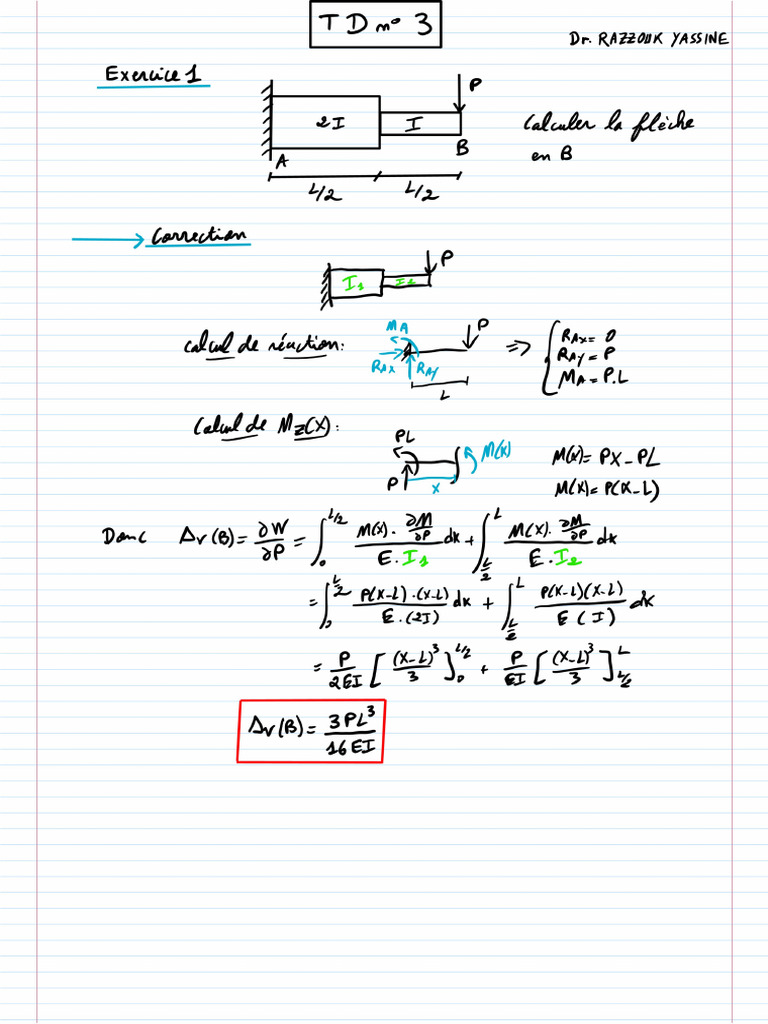 TD n° 3
Dr. RAZZOUK YASSINE
Exercice 1
P
2I I
A B
L/2 L/2
Calculer la flèche
en B
Correction
P
I1 I2
Calcul de réaction:
MA P
RAx RAy
L
=> { RAx = 0
RAy = P
MA = P.L
Calcul de Mz(x):
PL M(x)
P x
M(x) = PX - PL
M(x) = P(X-L)
Donc Δv(B) = ∂W/∂P = ∫₀^{L/2} M(x)·∂M/∂P / E·I1 dx + ∫_{L/2}^{L} M(x)·∂M/∂P / E·I2 dx
= ∫₀^{L/2} P(X-L)·(X-L) / E·(2I) dx + ∫_{L/2}^{L} P(X-L)(X-L) / E(I) dx
= P/2EI [(X-L)³/3]₀^{L/2} + P/EI [(X-L)³/3]_{L/2}^{L}
Δv(B) = 3PL³/16EI